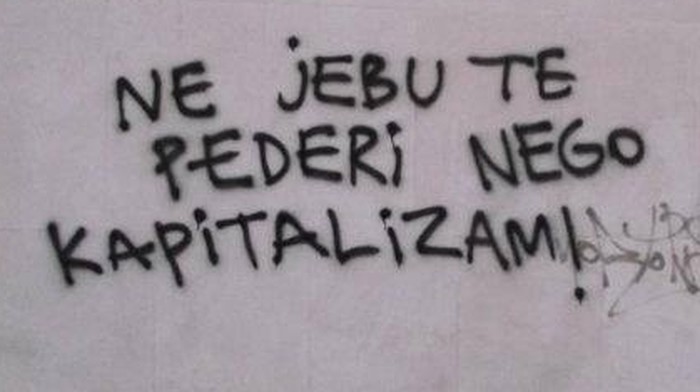 NE JEBU TE
PEDERI NEGO
KAPITALIZAM!